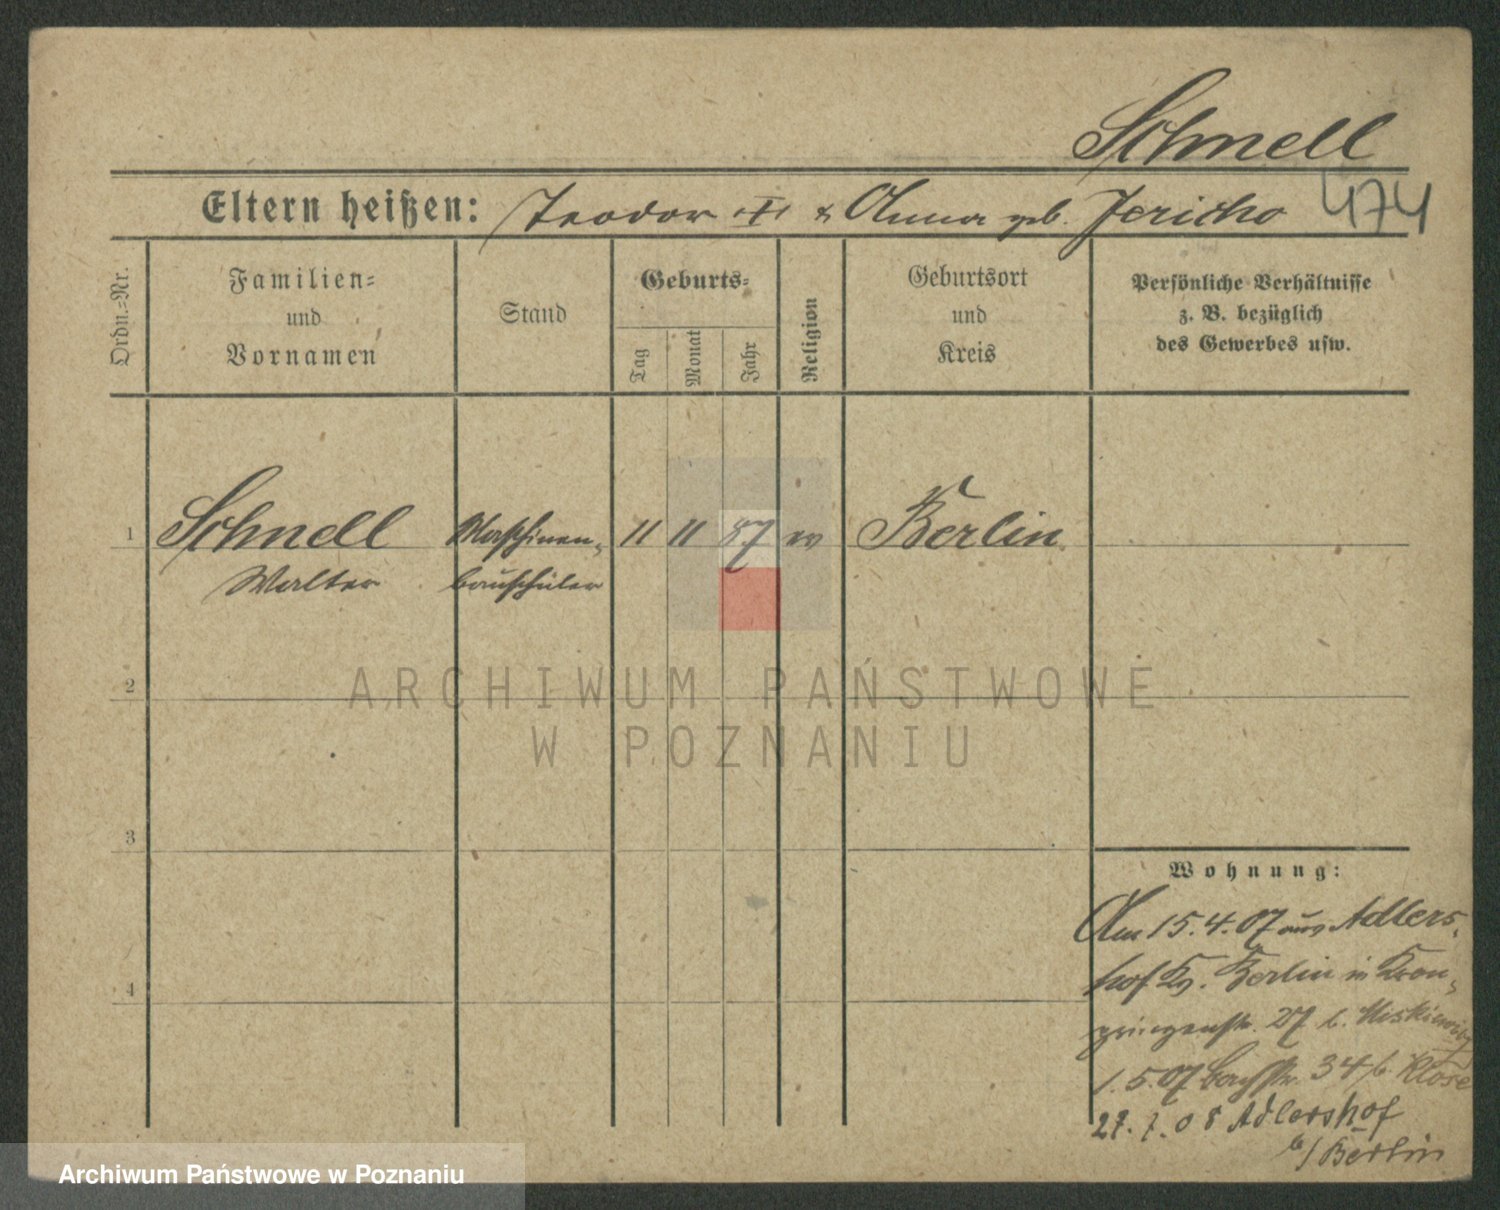 Schnell
474
Eltern heißen: Teodor I & Anna geb. Jericho
Ordn.-Nr.
Familien-
und
Vornamen
Stand
Geburts-
Tag
Monat
Jahr
Religion
Geburtsort
und
Kreis
Persönliche Verhältnisse
z. B. bezüglich
des Gewerbes usw.
1 Schnell Maschinen- 11 11 87 ev Berlin
Walter bauschüler
2
3
4
ARCHIWUM PAŃSTWOWE
W POZNANIU
Wohnung:
Am 15.4.07 aus Adlers-
hof Kr. Berlin in Kron-
prinzenstr. 27 b.
1.5.07 Bachstr. 34 b. Klose
27. 7. 08 Adlershof
b/Berlin
Archiwum Państwowe w Poznaniu